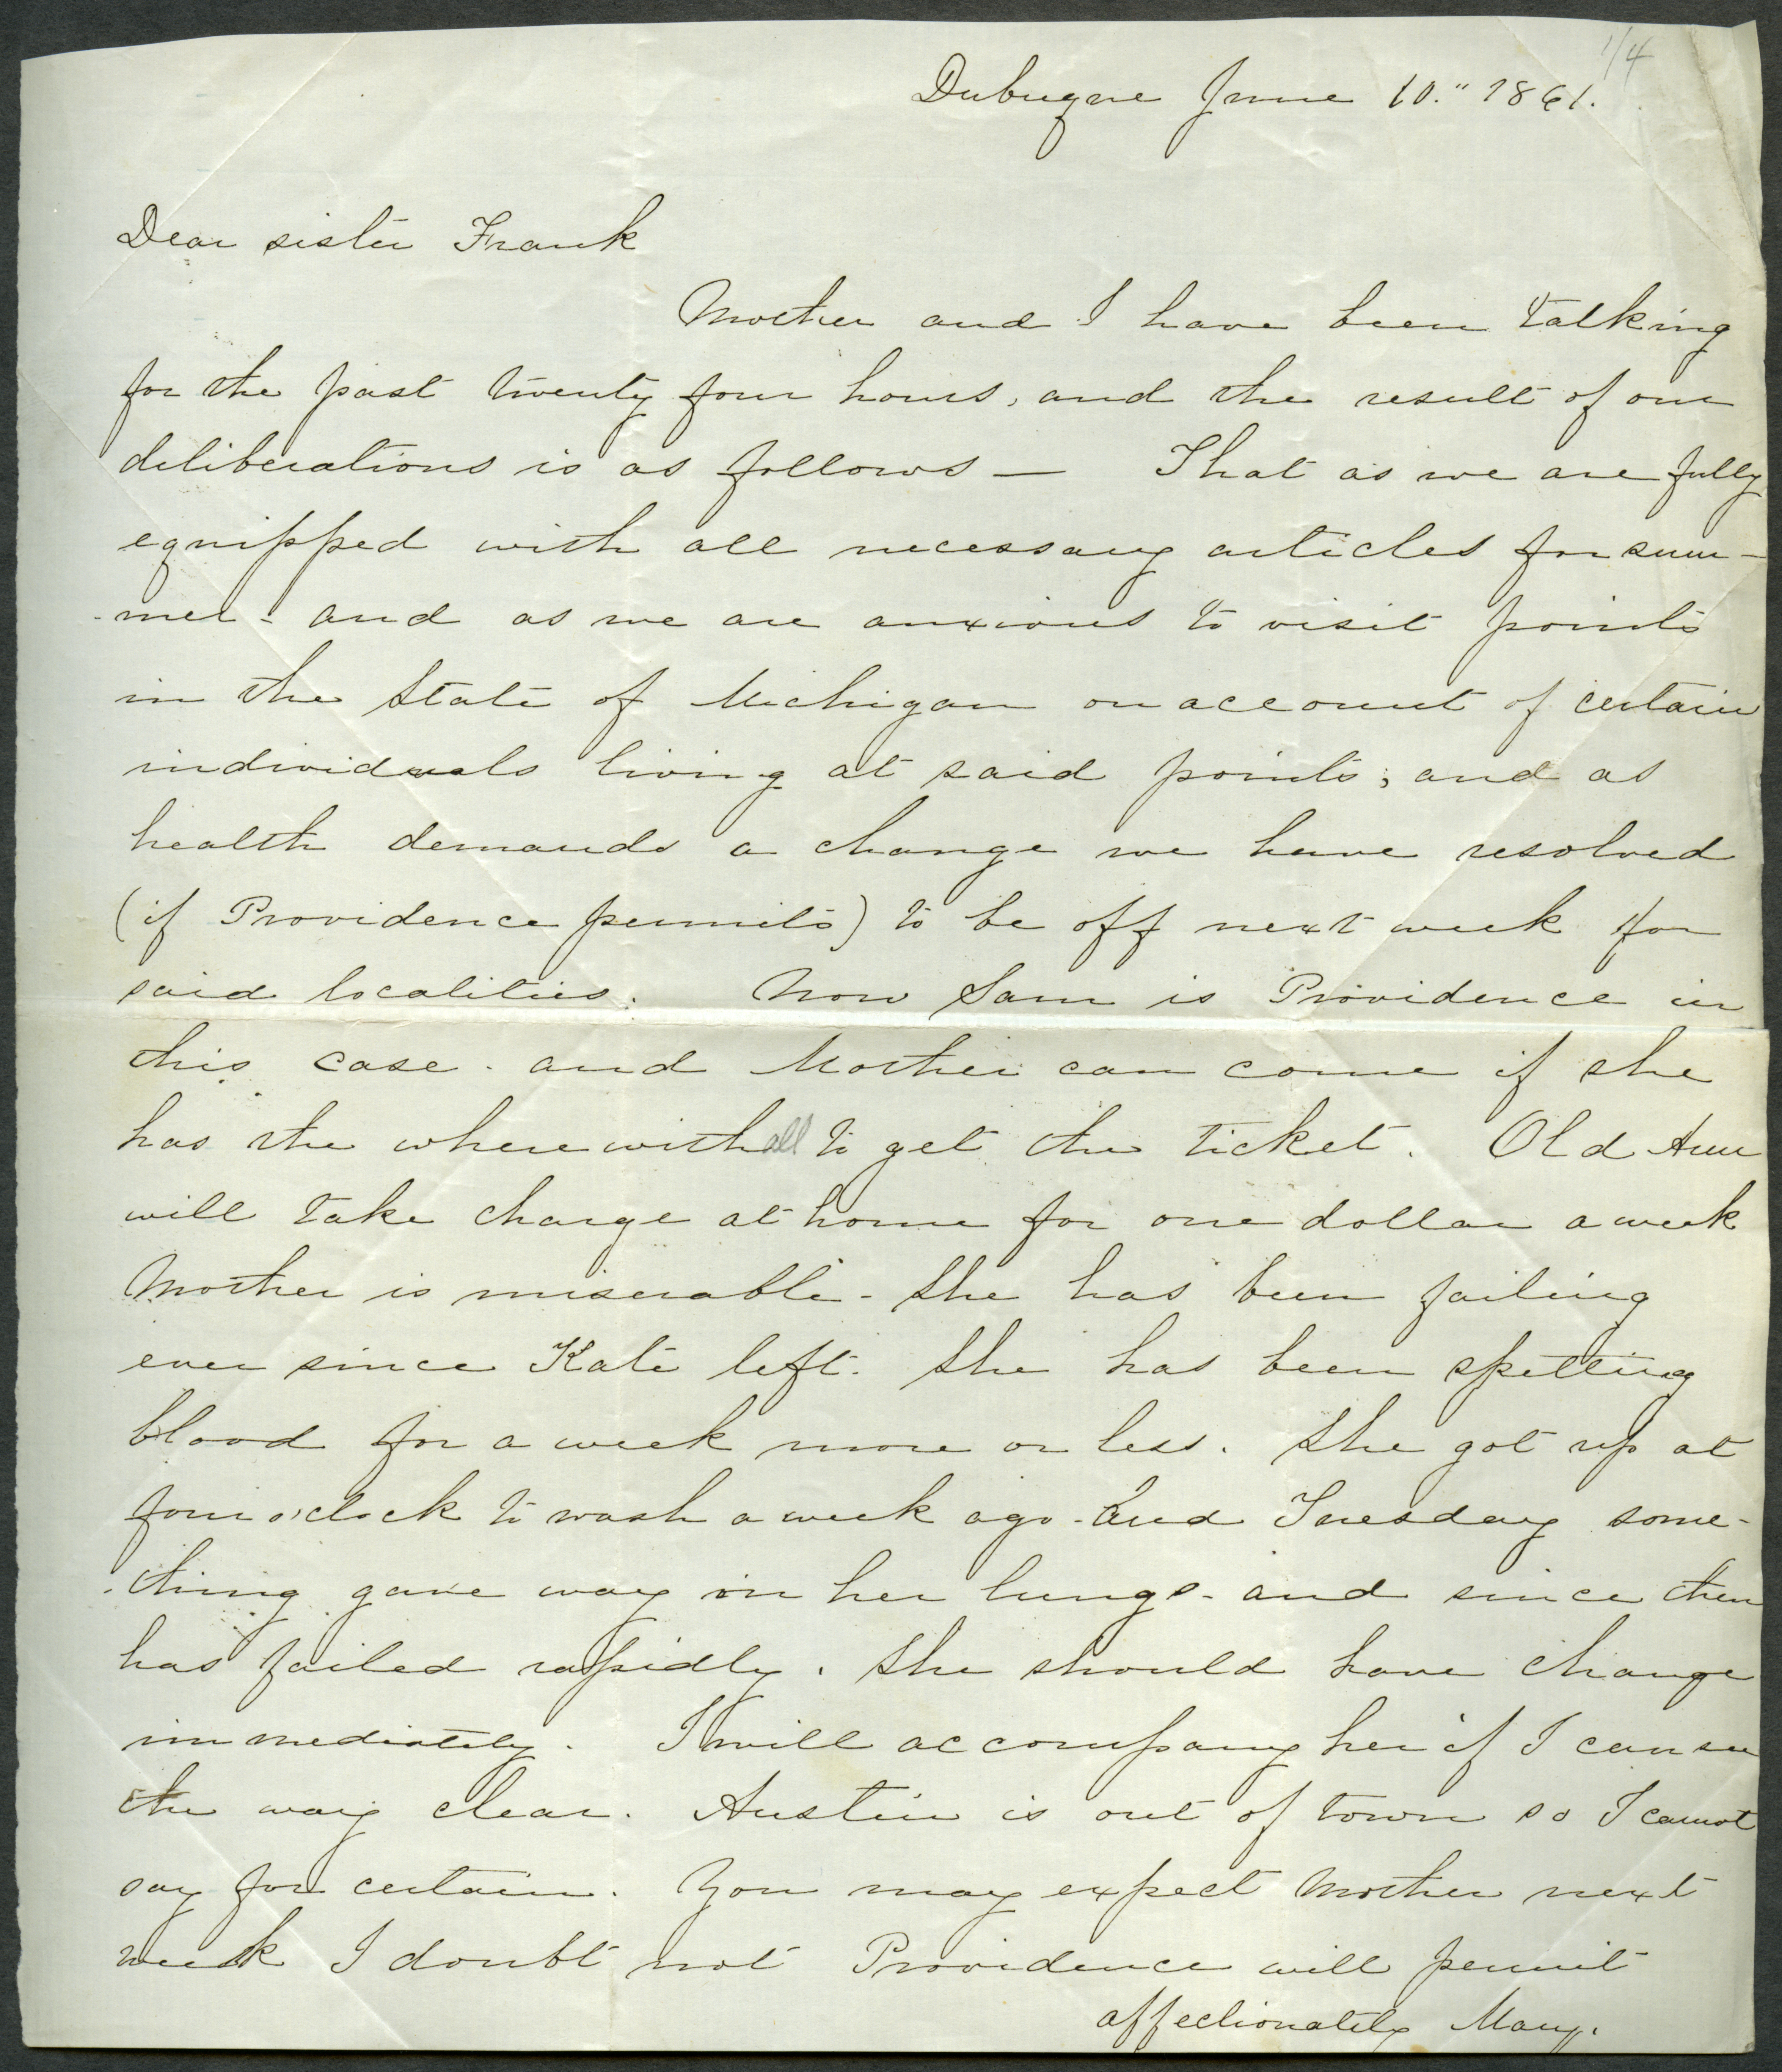 1/4
Dubuque June 10." 1861.
Dear sister Frank
Mother and I have been talking
for the past twenty four hours, and the result of our
deliberations is as follows — That as we are fully
equipped with all necessary articles for sum-
-mer - and as we are anxious to visit points
in the State of Michigan on account of certain
individuals living at said points; and as
health demands a change we have resolved
(if Providence permits) to be off next week for
said localities. Now Sam is Providence in
this case - and Mother can come if she
has the wherewithall to get the ticket. Old Ann
will take charge at home for one dollar a week
Mother is miserable - She has been failing
ever since Kate left. She has been spitting
blood for a week more or less. She got up at
four o'clock to wash a week ago - and Tuesday some-
-thing gave way in her lungs - and since then
has failed rapidly. She should have change
immediately. I will accompany her if I can see
the way clear. Austin is out of town so I cannot
say for certain. You may expect Mother next
week I doubt not Providence will permit
affectionately Mary.